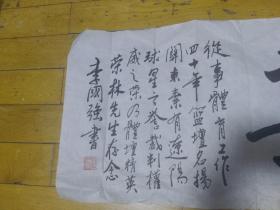 從事體育工作
四十年籃壇名揚
關東素有遼寧
球星之譽裁判權
威之榮乃體壇精英
荣林先生存念
李國强書